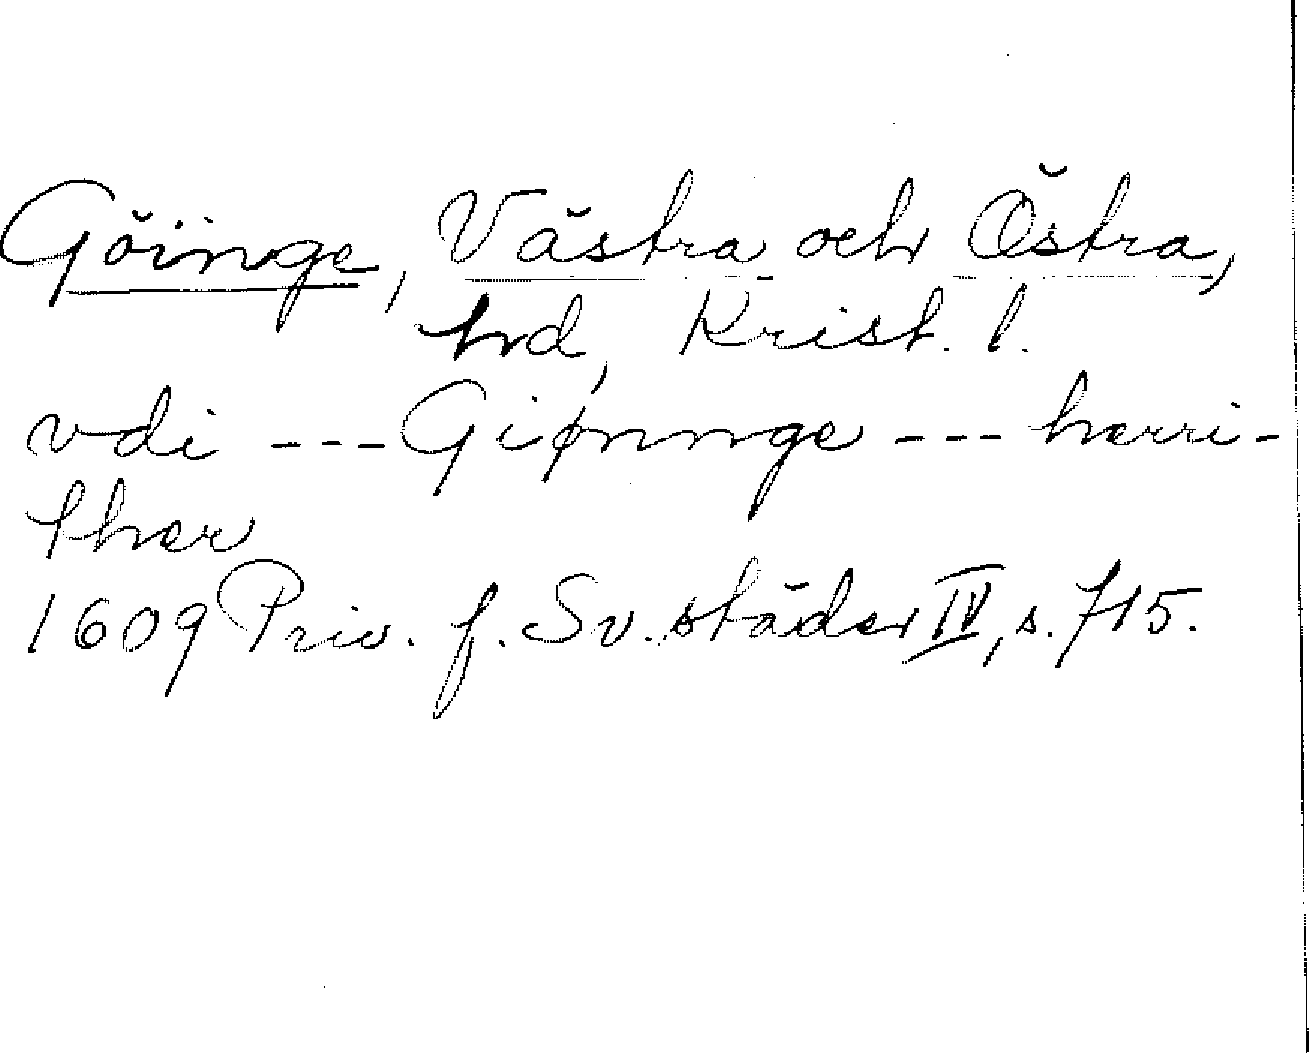 Göinge, Västra och Östra,
hd, Krist. l.
vdi --- Giønnge --- herri-
ther
1609 Priv. f. Sv. städer IV, s. 715.